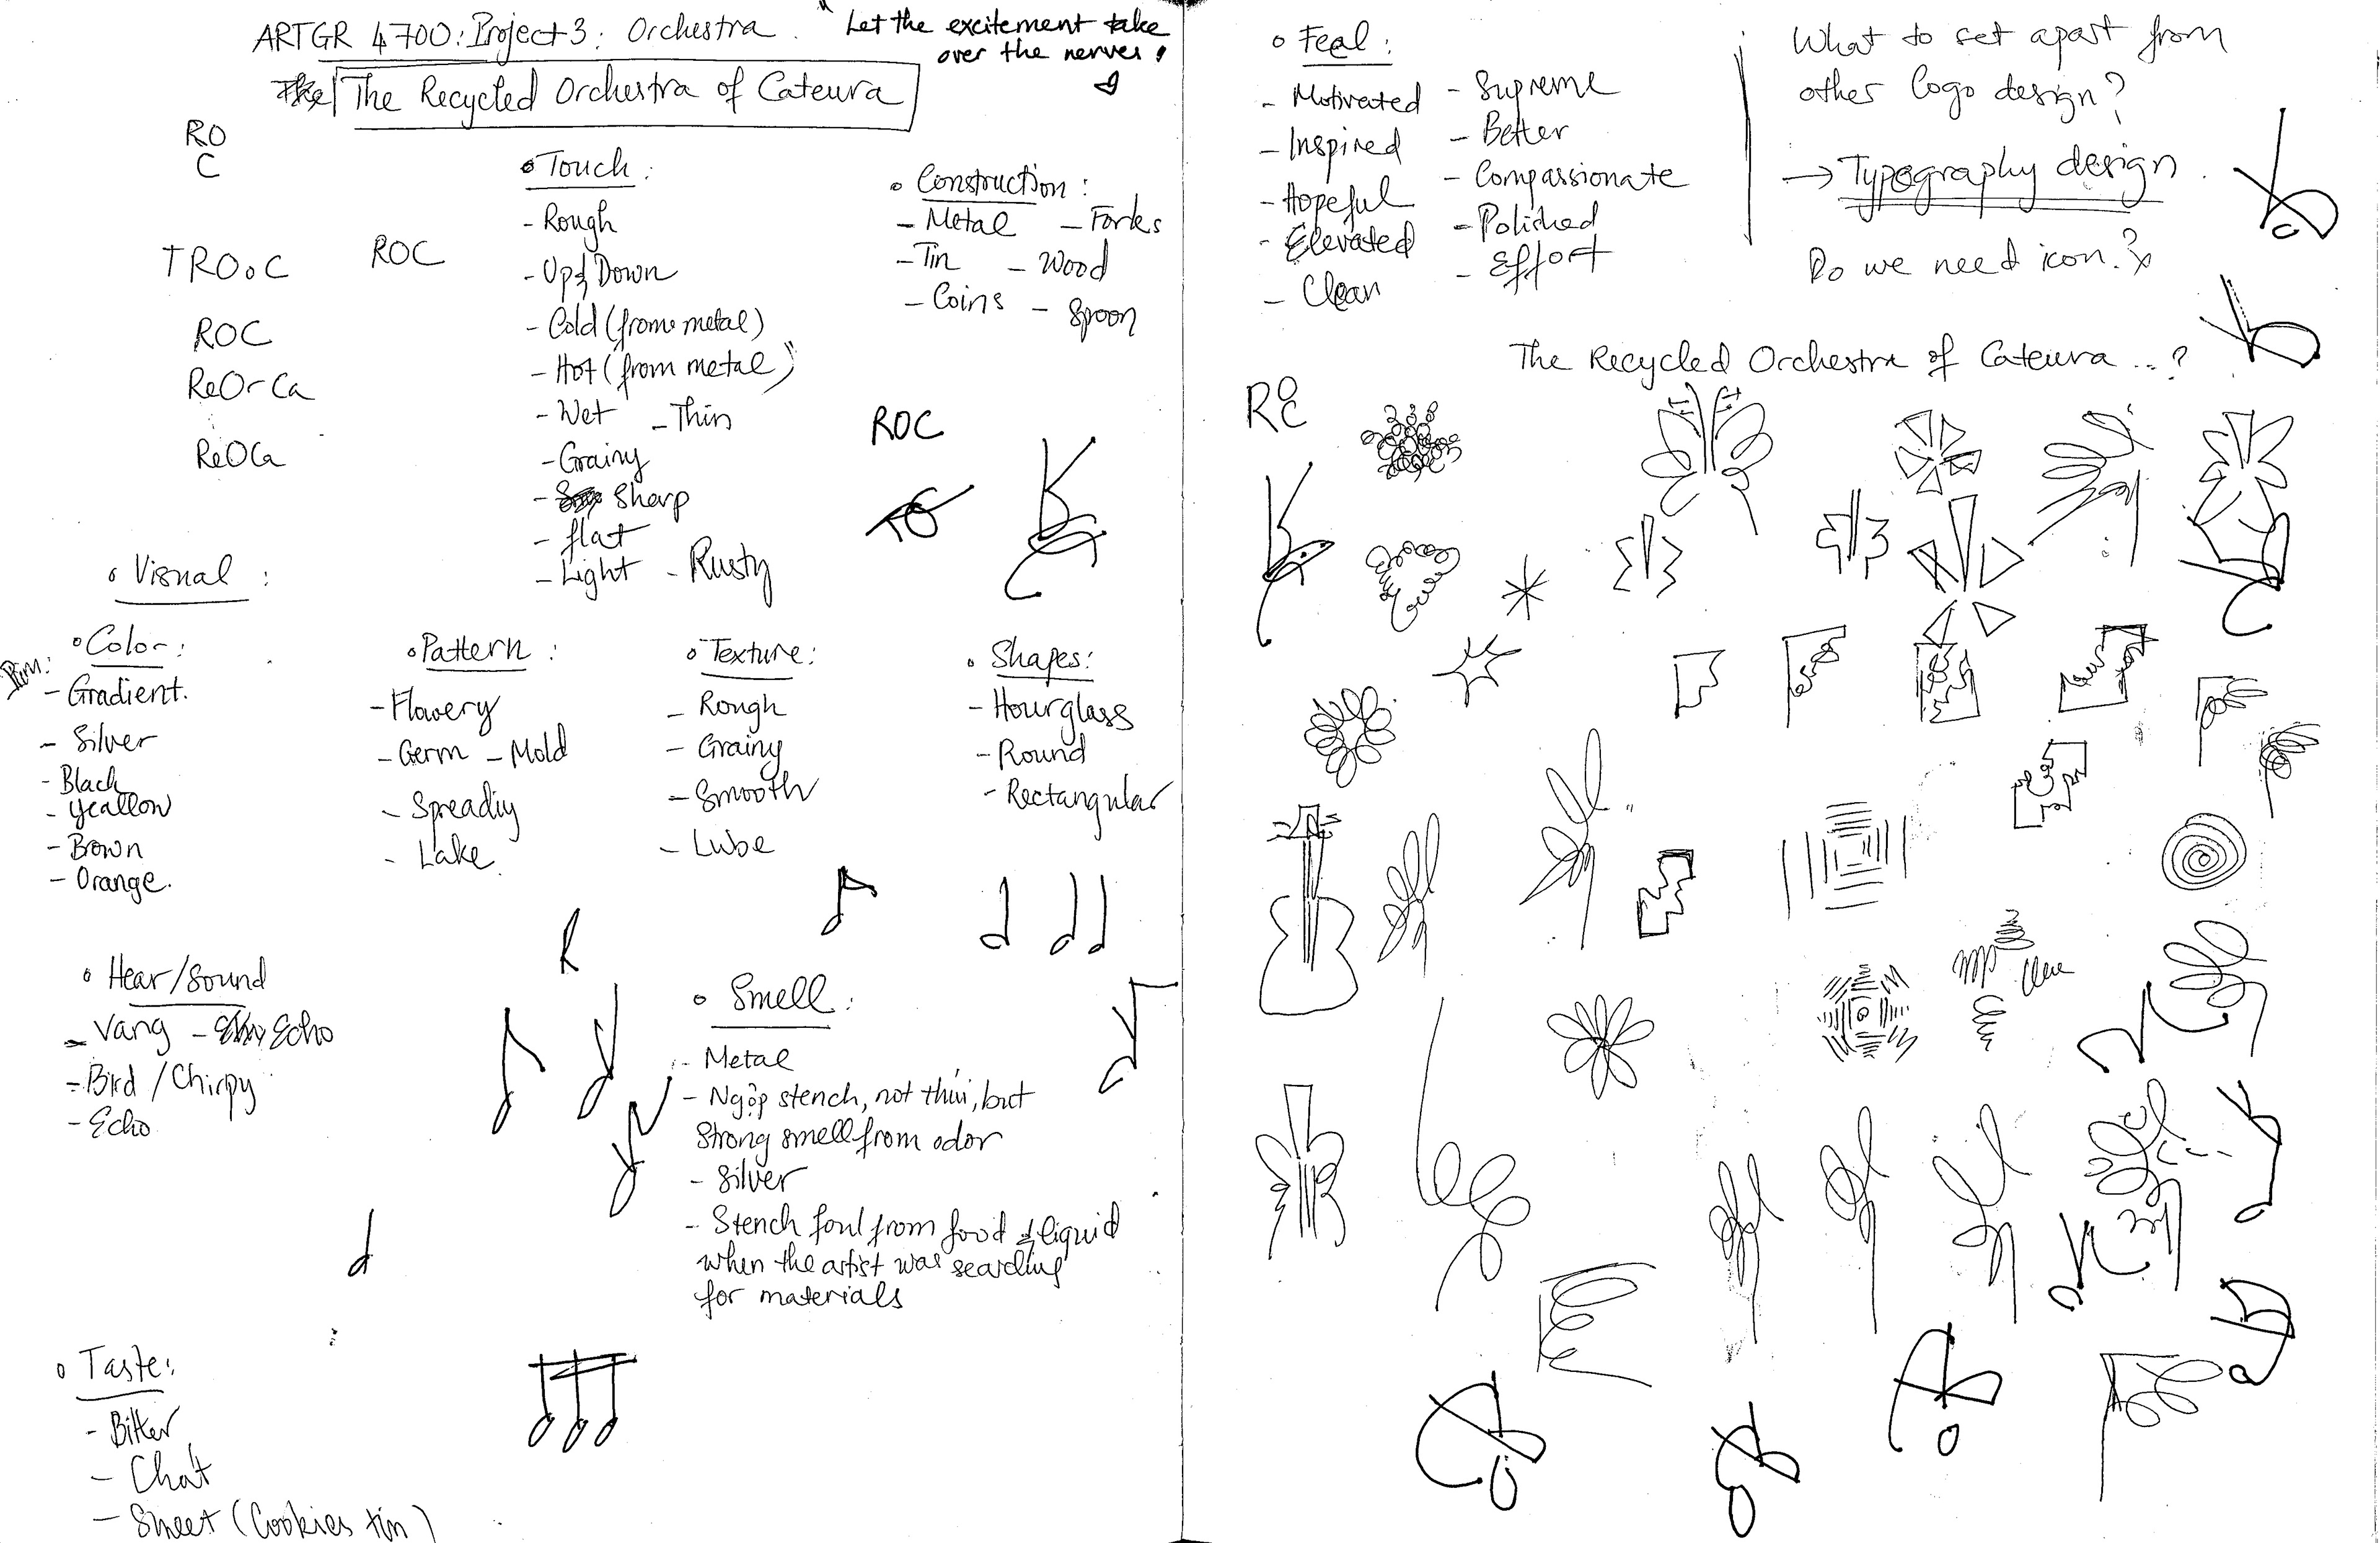 ARTGR 4700: Project 3: Orchestra.
"Let the excitement take
over the nerves!
The Recycled Orchestra of Cateura
RO
C
TROoC
ROC
ROC
ReOrCa
ReOCa
Touch:
- Rough
- Up & Down
- Cold (from metal)
- Hot (from metal)
- Wet - Thin
- Grainy
- Sharp
- flat
- Light - Rusty
Construction:
- Metal - Forks
- Tin - Wood
- Coins - Spoon
ROC
Visual:
Color:
- Gradient.
- Silver
- Black
- Yeallow
- Brown
- Orange.
Pattern:
- Flowery
- Germ - Mold
- Spreadiy
- Lake
Texture:
- Rough
- Grainy
- Smooth
- Lube
Shapes:
- Hourglass
- Round
- Rectangular
Hear/Sound
- Vang - Echo
- Bird / Chirpy
- Echo
Smell:
- Metal
- Ngộp stench, not thúi, but
strong smell from odor
- Silver
- Stench foul from food & liquid
when the artist was searching
for materials
Taste:
- Bitter
- Chát
- Sweet (Cookies tin)
Feal:
- Motivated
- Inspired
- Hopeful
- Elevated
- Clean
- Supreme
- Better
- Compassionate
- Polished
- Effort
What to set apart from
other logo design?
→ Typography design.
Do we need icon?
The Recycled Orchestra of Cateura...?
ROC